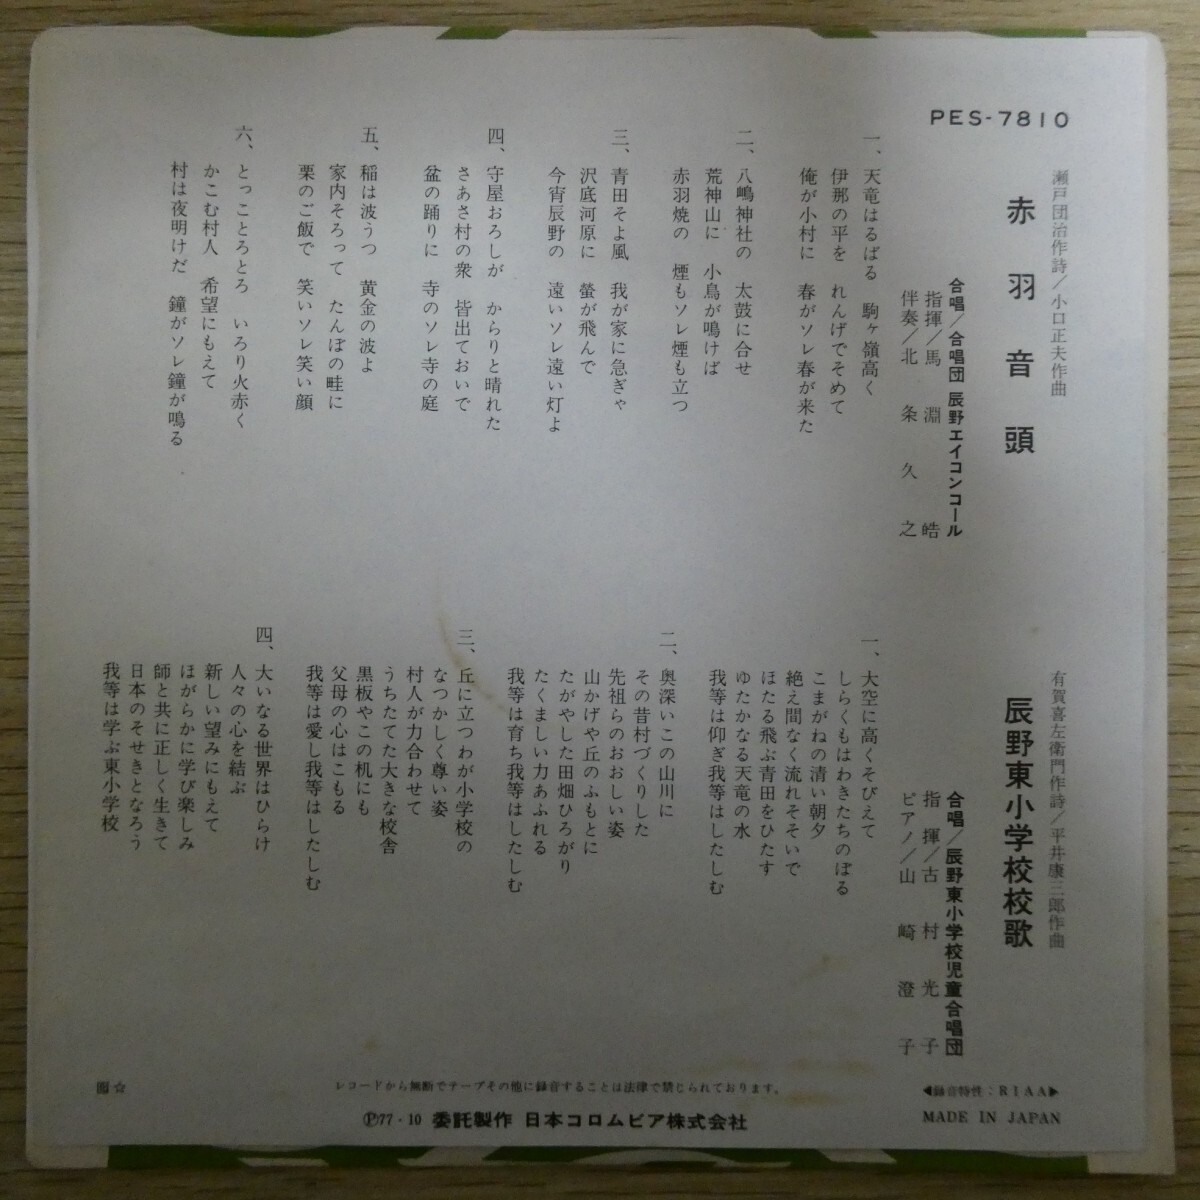 PES-7810
瀬戸団治作詩/小口正夫作曲
赤羽音頭
合唱/合唱団 辰野エイコンコール
指揮/馬淵皓
伴奏/北条久之
一、天竜はるばる 駒ヶ嶺高く
伊那の平を れんげでそめて
俺が小村に 春がソレ春が来た
二、八嶋神社の 太鼓に合せ
荒神山に 小鳥が鳴けば
赤羽焼の 煙もソレ煙も立つ
三、青田そよ風 我が家に急ぎゃ
沢底河原に 螢が飛んで
今宵辰野の 遠いソレ遠い灯よ
四、守屋おろしが からりと晴れた
さあさ村の衆 皆出ておいで
盆の踊りに 寺のソレ寺の庭
五、稲は波うつ 黄金の波よ
家内そろって たんぼの畦に
栗のご飯で 笑いソレ笑い顔
六、とっことろとろ いろり火赤く
かこむ村人 希望にもえて
村は夜明けだ 鐘がソレ鐘が鳴る
有賀喜左衛門作詩/平井康三郎作曲
辰野東小学校校歌
合唱/辰野東小学校児童合唱団
指揮/古村光子
ピアノ/山崎澄子
一、大空に高くそびえて
しらくもはわきたちのぼる
こまがねの清い朝夕
絶え間なく流れそそいで
ほたる飛ぶ青田をひたす
ゆたかなる天竜の水
我等は仰ぎ我等はしたしむ
二、奥深いこの山川に
その昔村づくりした
先祖らのおおしい姿
山かげや丘のふもとに
たがやした田畑ひろがり
たくましい力あふれる
我等は育ち我等はしたしむ
三、丘に立つわが小学校の
なつかしく尊い姿
村人が力合わせて
うちたてた大きな校舎
黒板やこの机にも
父母の心はこもる
我等は愛し我等はしたしむ
四、大いなる世界はひらけ
人々の心を結ぶ
新しい望みにもえて
ほがらかに学び楽しみ
師と共に正しく生きて
日本のそせきとなろう
我等は学ぶ東小学校
レコードから無断でテープその他に録音することは法律で禁じられております。
◀録音特性:RIAA▶
Ⓟ77・10 委託製作 日本コロムビア株式会社
MADE IN JAPAN